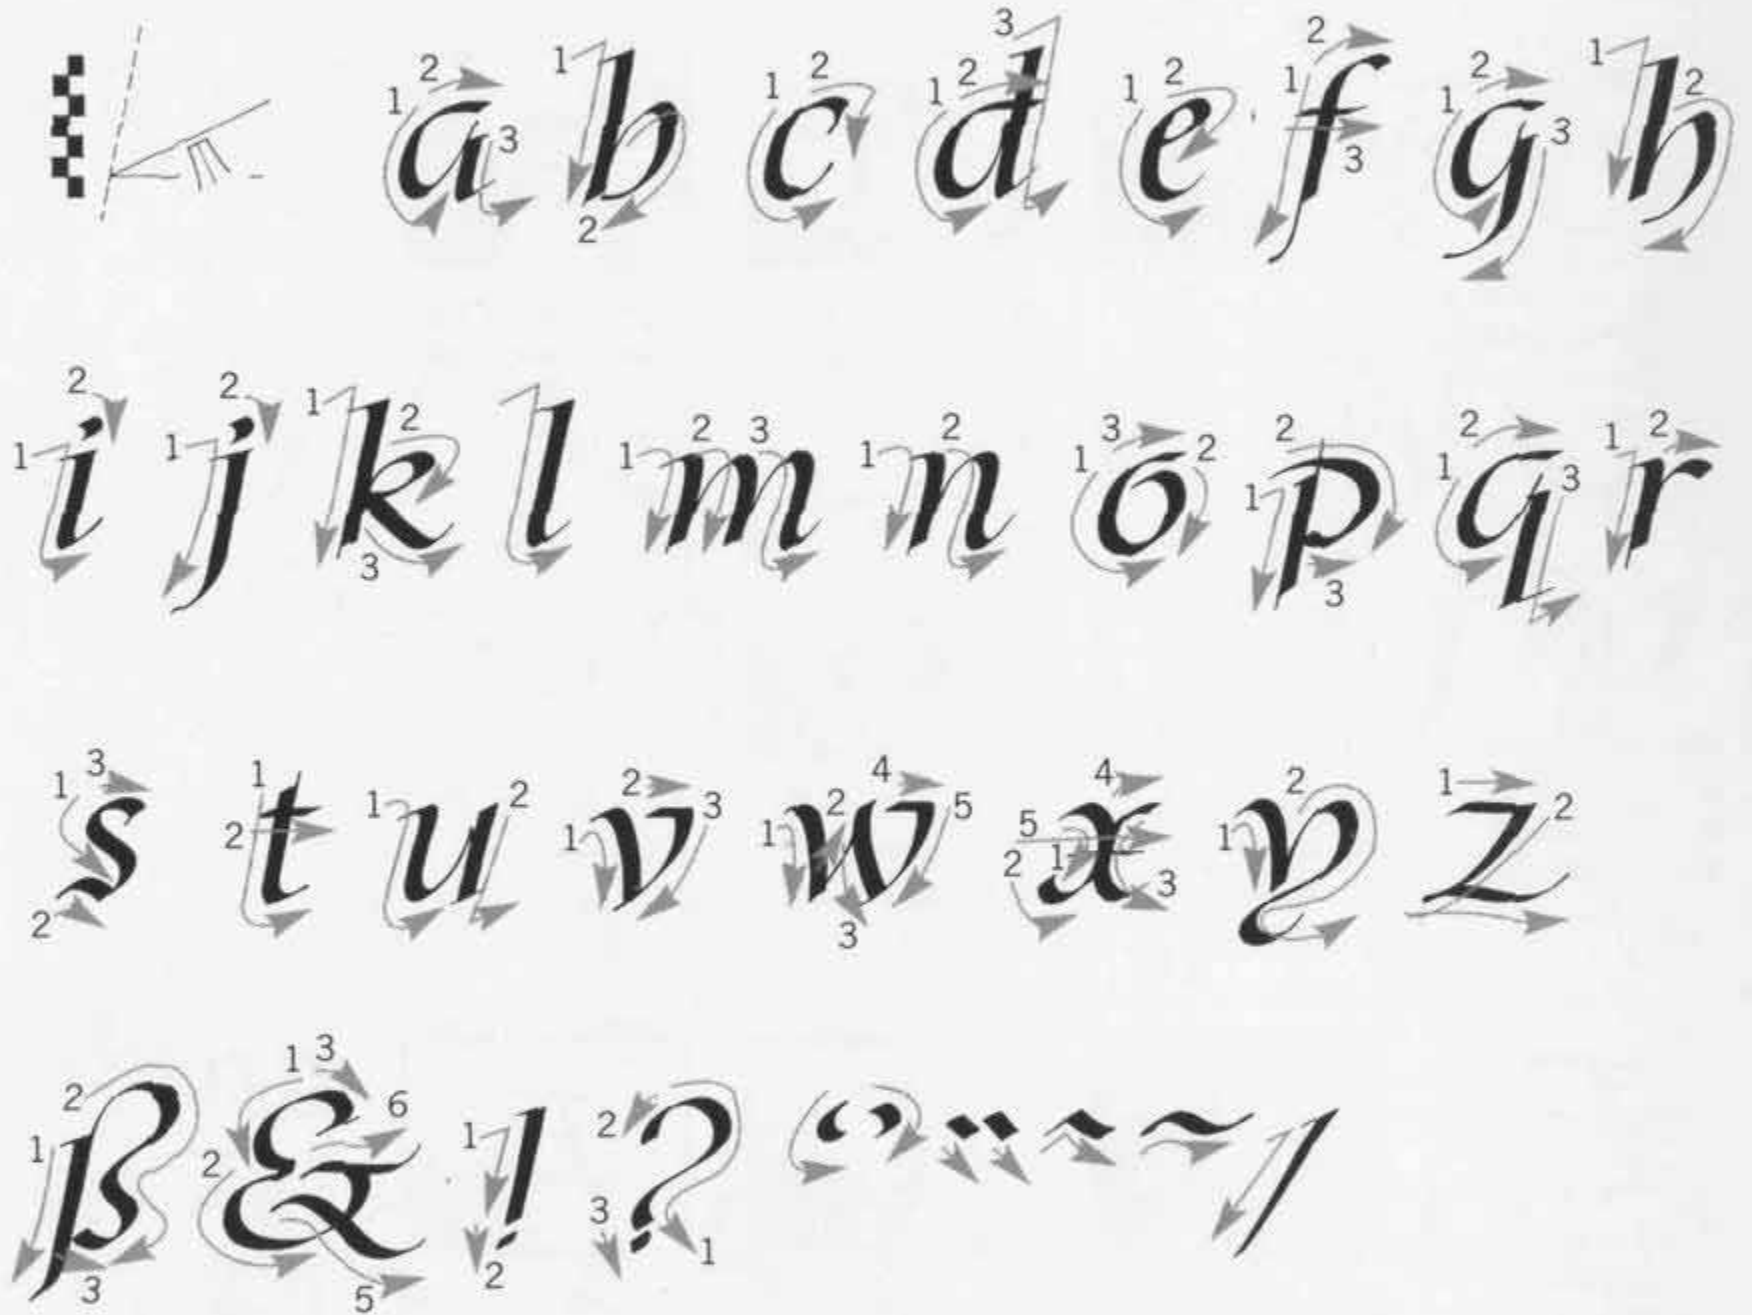 a b c d e f g h
i j k l m n o p q r
s t u v w x y z
ß & ! ? ‘ ’ ¨ ^ ~ /